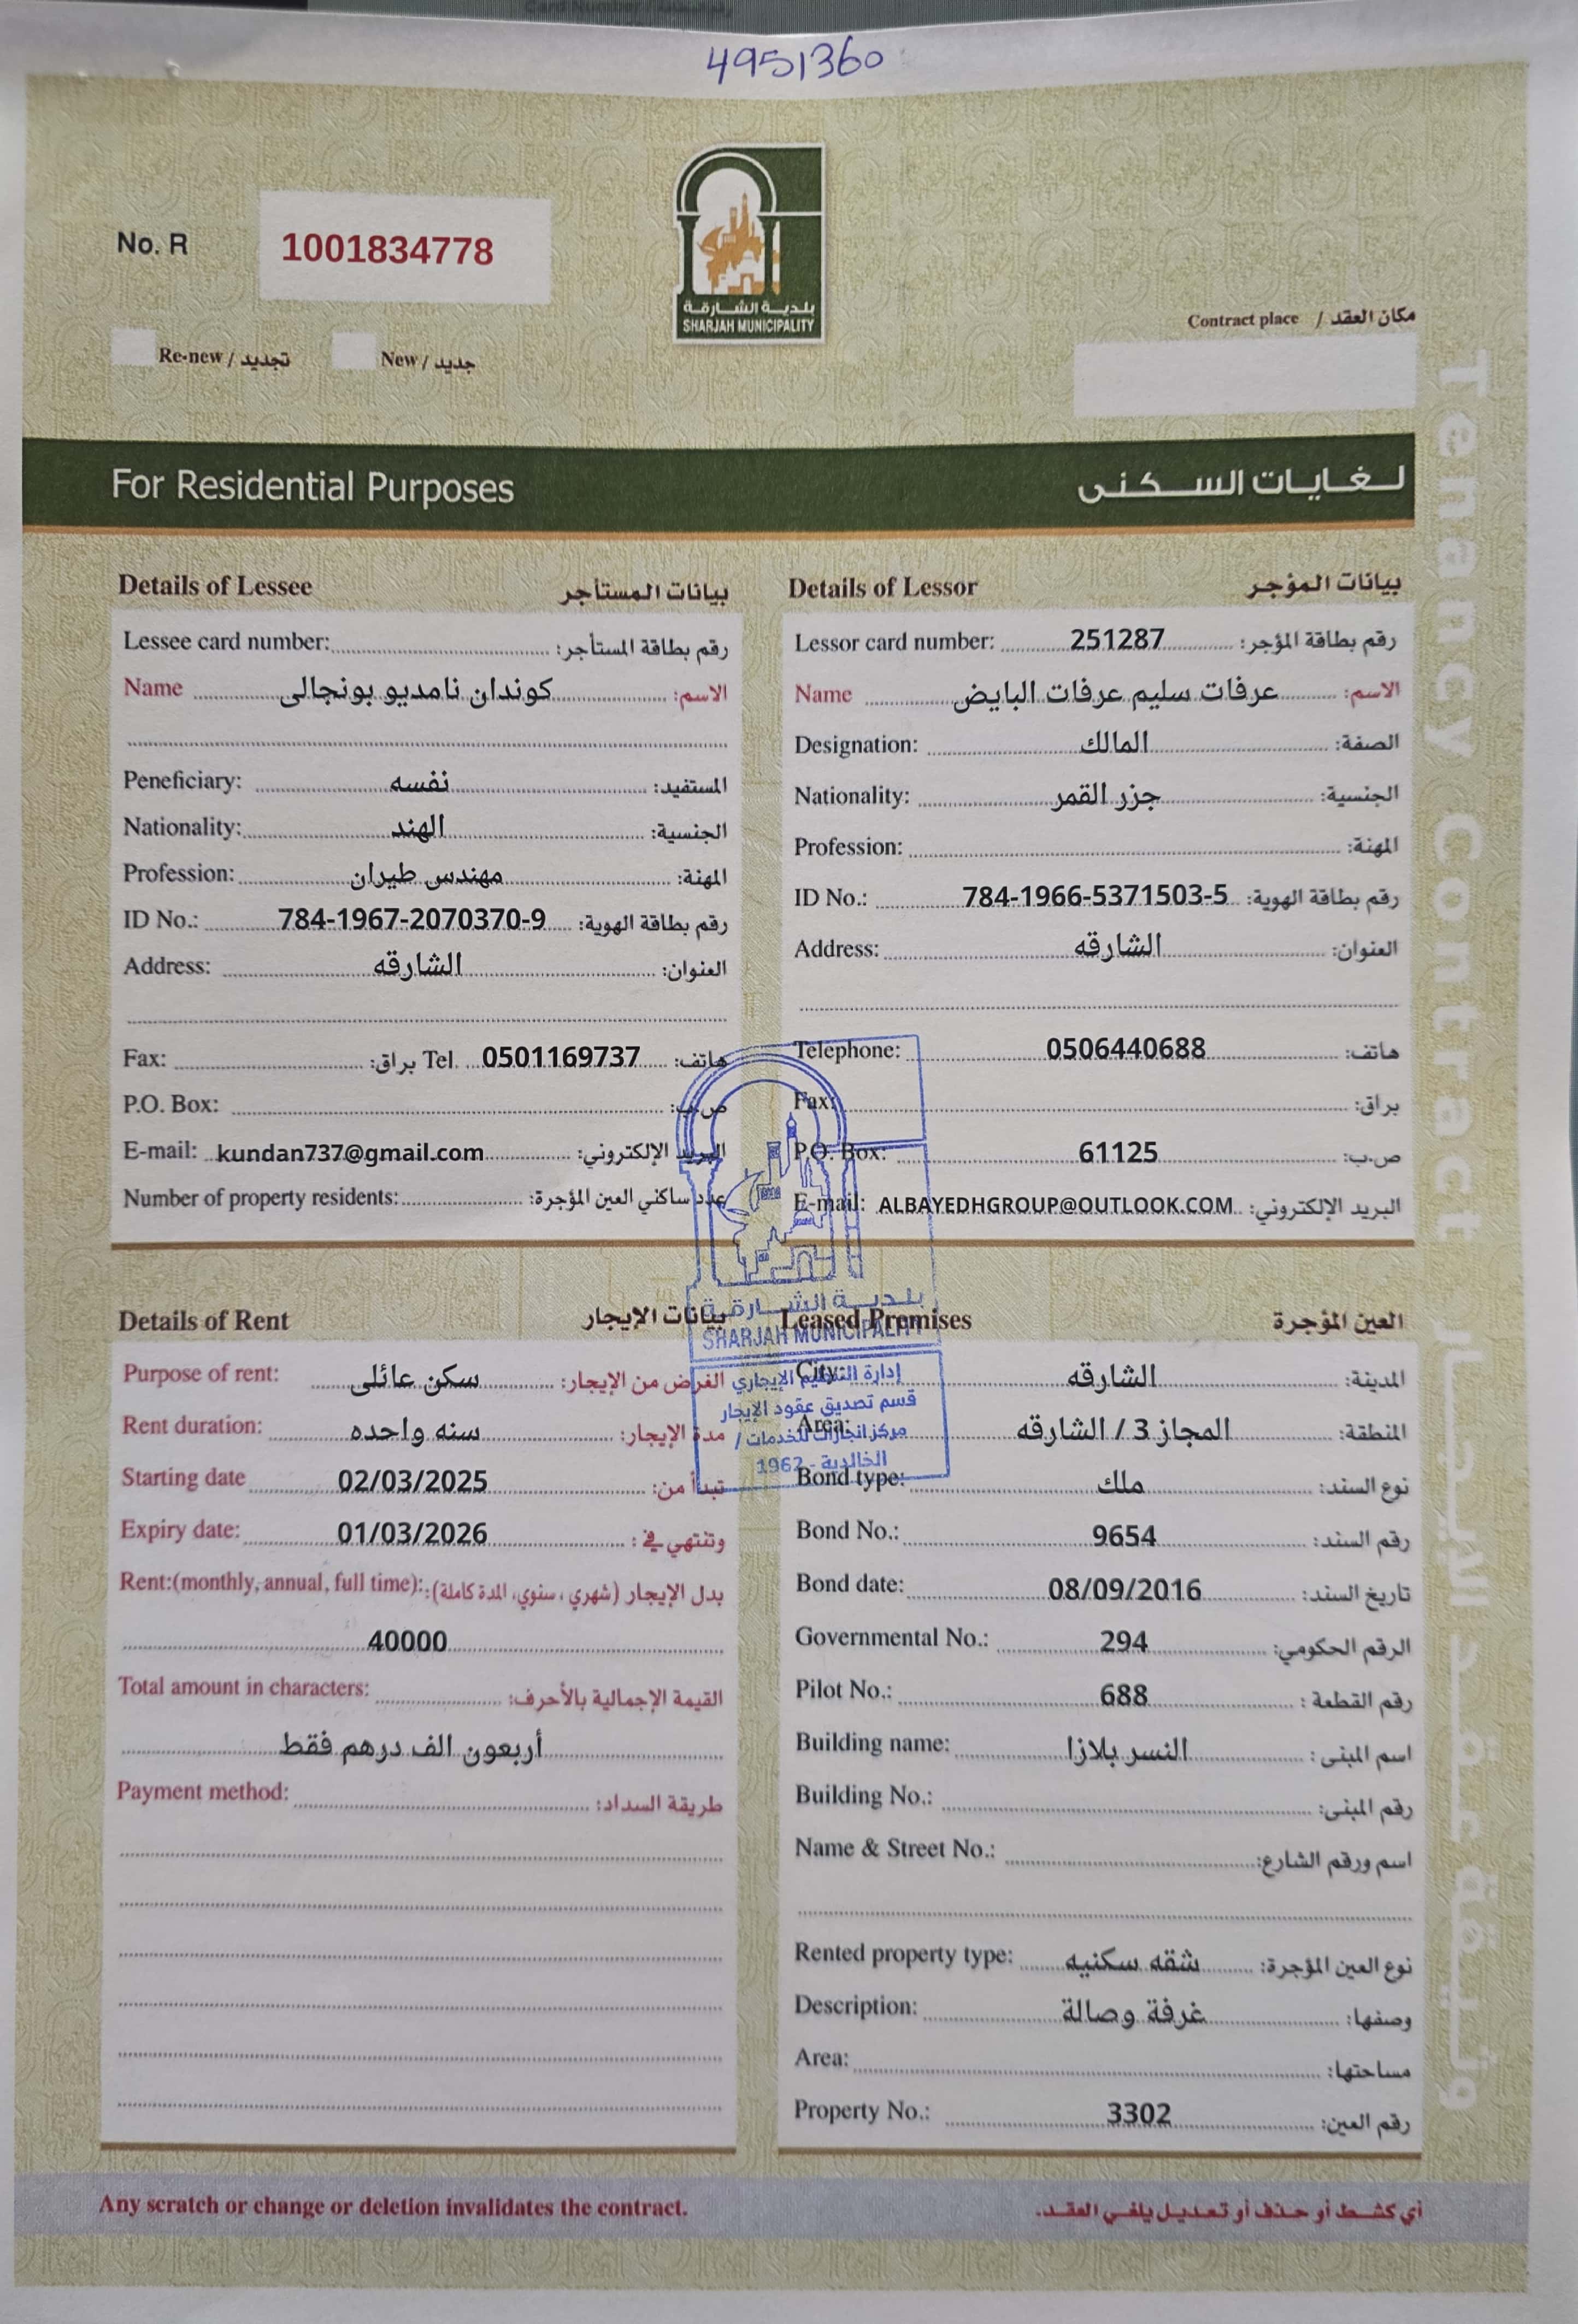 4951360
No. R 1001834778
بلدية الشارقة
SHARJAH MUNICIPALITY
Contract place / مكان العقد
Re-new / تجديد New / جديد
For Residential Purposes لغايات السكنى
Tenancy Contract
وثيقة عقد الإيجار
Details of Lessee بيانات المستأجر
Lessee card number: رقم بطاقة المستأجر:
Name كوندان نامديو بونجالى الاسم:
Peneficiary: نفسه المستفيد:
Nationality: الهند الجنسية:
Profession: مهندس طيران المهنة:
ID No.: 784-1967-2070370-9 رقم بطاقة الهوية:
Address: الشارقه العنوان:
Fax: براق: Tel. 0501169737 هاتف:
P.O. Box: ص.ب:
E-mail: kundan737@gmail.com البريد الإلكتروني:
Number of property residents: عدد ساكني العين المؤجرة:
Details of Lessor بيانات المؤجر
Lessor card number: 251287 رقم بطاقة المؤجر:
Name عرفات سليم عرفات البايض الاسم:
Designation: المالك الصفة:
Nationality: جزر القمر الجنسية:
Profession: المهنة:
ID No.: 784-1966-5371503-5 رقم بطاقة الهوية:
Address: الشارقه العنوان:
Telephone: 0506440688 هاتف:
Fax: براق:
P.O. Box: 61125 ص.ب:
E-mail: ALBAYEDHGROUP@OUTLOOK.COM البريد الإلكتروني:
بلدية الشارقة
SHARJAH MUNICIPALITY
إدارة التنظيم الإيجاري
قسم تصديق عقود الإيجار
مركز انجازات للخدمات /
الخالدية - 1962
Details of Rent بيانات الإيجار
Purpose of rent: سكن عائلى الغرض من الإيجار:
Rent duration: سنه واحده مدة الإيجار:
Starting date 02/03/2025 تبدأ من:
Expiry date: 01/03/2026 وتنتهي في :
Rent:(monthly, annual, full time): بدل الإيجار (شهري ، سنوي، المدة كاملة):
40000
Total amount in characters: القيمة الإجمالية بالأحرف:
أربعون الف درهم فقط
Payment method: طريقة السداد:
Leased Premises العين المؤجرة
City: الشارقه المدينة:
Area: المجاز 3 / الشارقه المنطقة:
Bond type: ملك نوع السند:
Bond No.: 9654 رقم السند:
Bond date: 08/09/2016 تاريخ السند:
Governmental No.: 294 الرقم الحكومي:
Pilot No.: 688 رقم القطعة :
Building name: النسر بلازا اسم المبنى :
Building No.: رقم المبنى:
Name & Street No.: اسم ورقم الشارع:
Rented property type: شقه سكنيه نوع العين المؤجرة:
Description: غرفة وصالة وصفها:
Area: مساحتها:
Property No.: 3302 رقم العين:
Any scratch or change or deletion invalidates the contract. أي كشط أو حذف أو تعديل يلغي العقد.